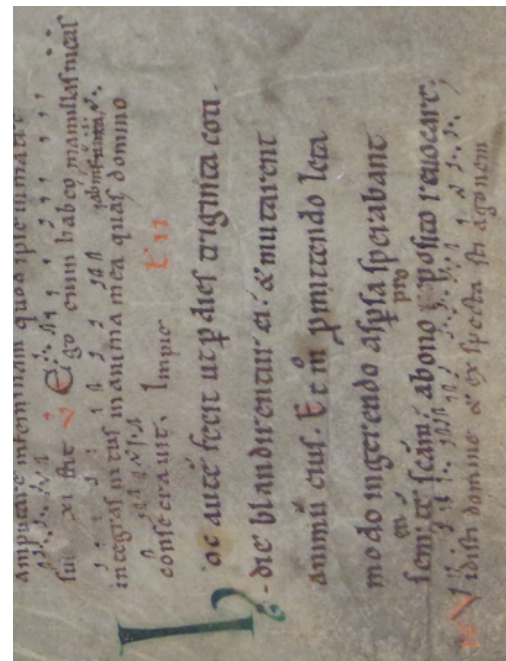 amputare in feminam quod ipse in matre
sui xisti V Ego enim habeo mamillas meas
ab infantia
integras intus in anima mea quas domino
consecravit. Impie
Hoc autē fecit ut p dies triginta coti-
-die blandirentur ei. & mutarent
animū eius. Et m° pmittendo leta
modo ingerendo aspsa sperabant
pro
abono posito revocare;
Vidisti domine & exspecta sti agonem